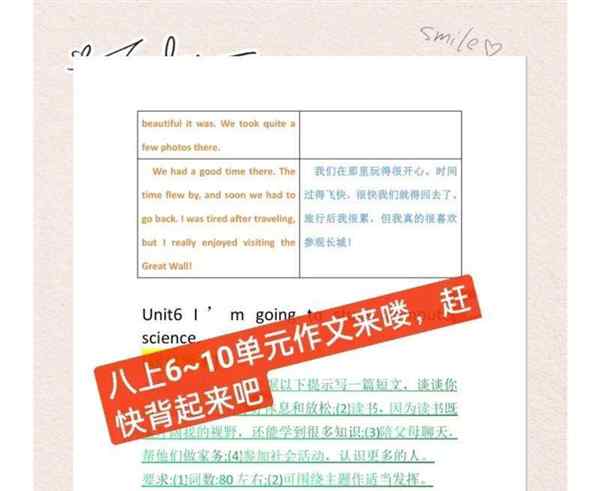 smile♡
beautiful it was. We took quite a
few photos there.
We had a good time there. The
time flew by, and soon we had to
go back. I was tired after traveling,
but I really enjoyed visiting the
Great Wall!
我们在那里玩得很开心。时间
过得飞快，很快我们就得回去了。
旅行后我很累，但我真的很喜欢
参观长城！
Unit6 I’m going to
science.
八上6~10单元作文来喽，赶
快背起来吧
据以下提示写一篇短文，谈谈你
休息和放松;(2)读书，因为读书既
我的视野，还能学到很多知识;(3)陪父母聊天，
帮他们做家务;(4)参加社会活动，认识更多的人。
要求:(1)词数:80左右;(2)可围绕主题作适当发挥。